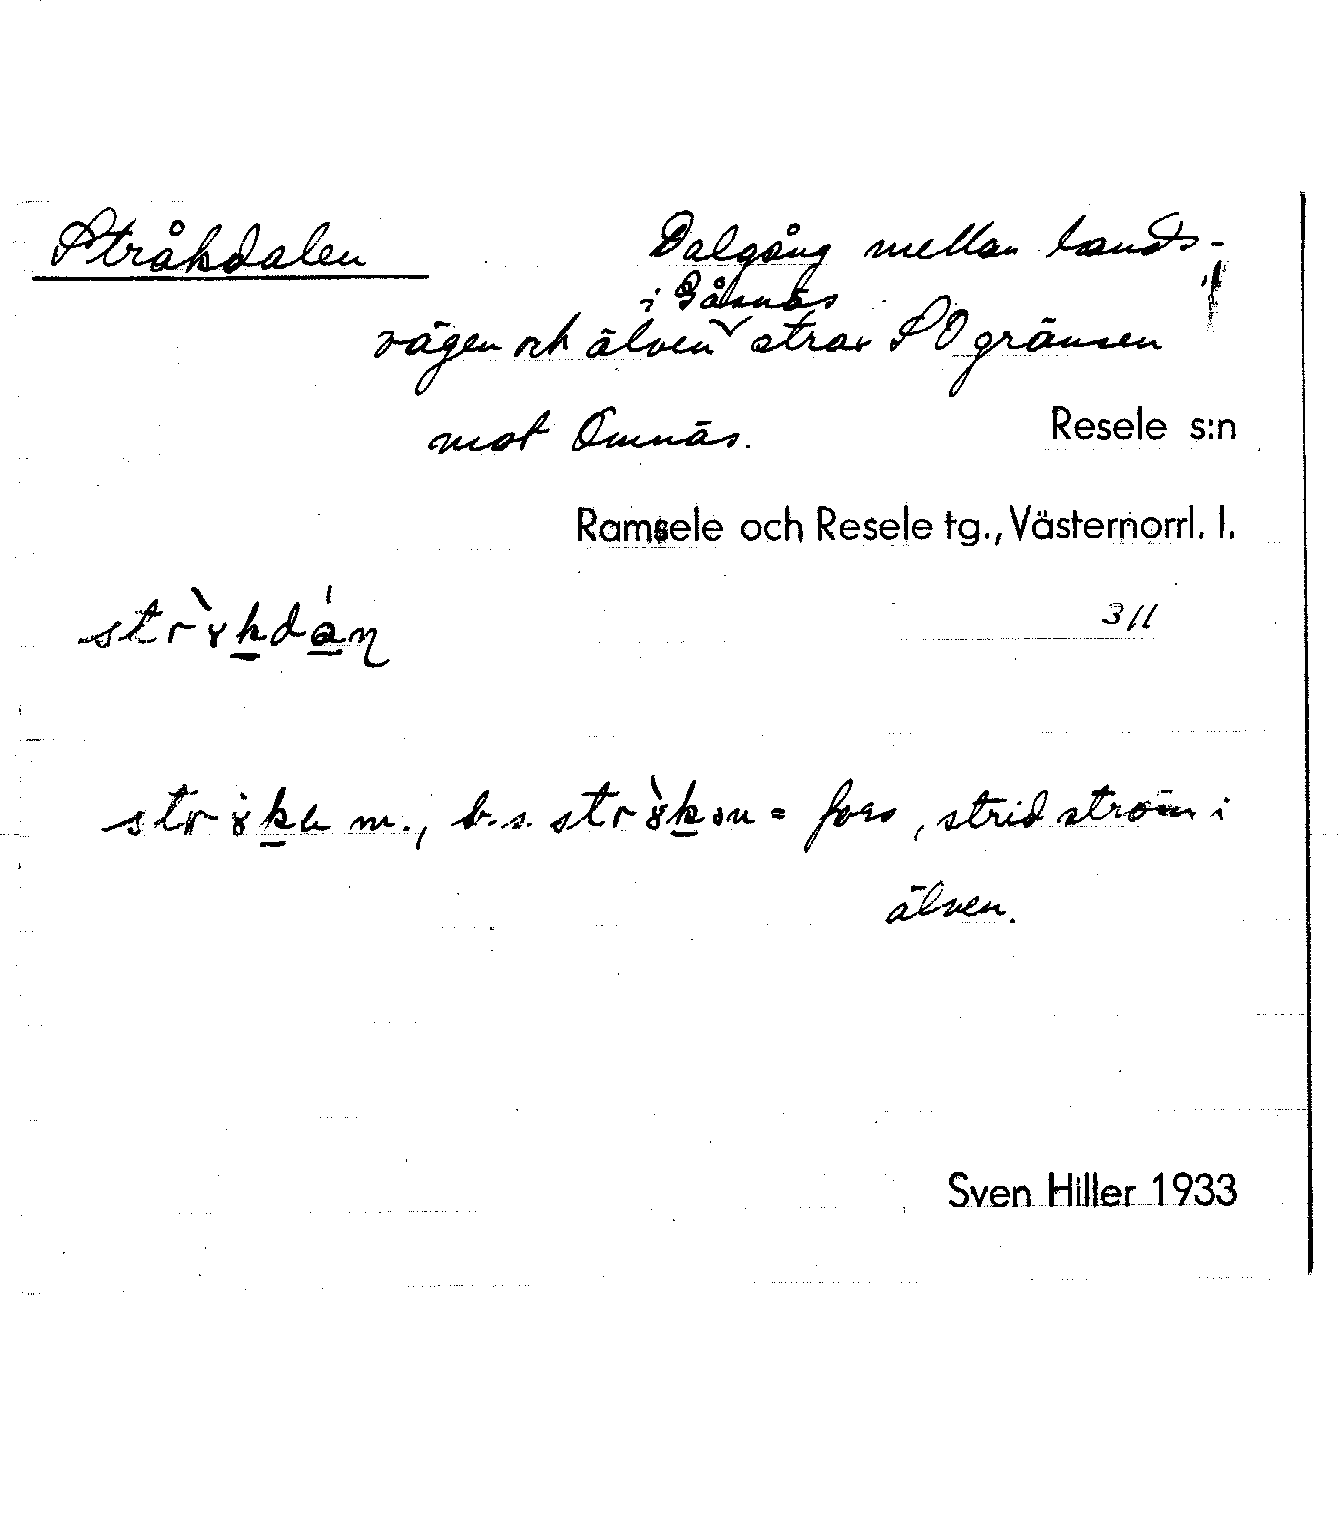 Stråkdalen
Dalgång mellan lands-
i Gåsnäs
vägen och älven strax SO gränsen
mot Omnäs.
Resele s:n
Ramsele och Resele tg., Västernorrl. l.
3/11
m., b.s. = fors, strid ström i
älven.
Sven Hiller 1933